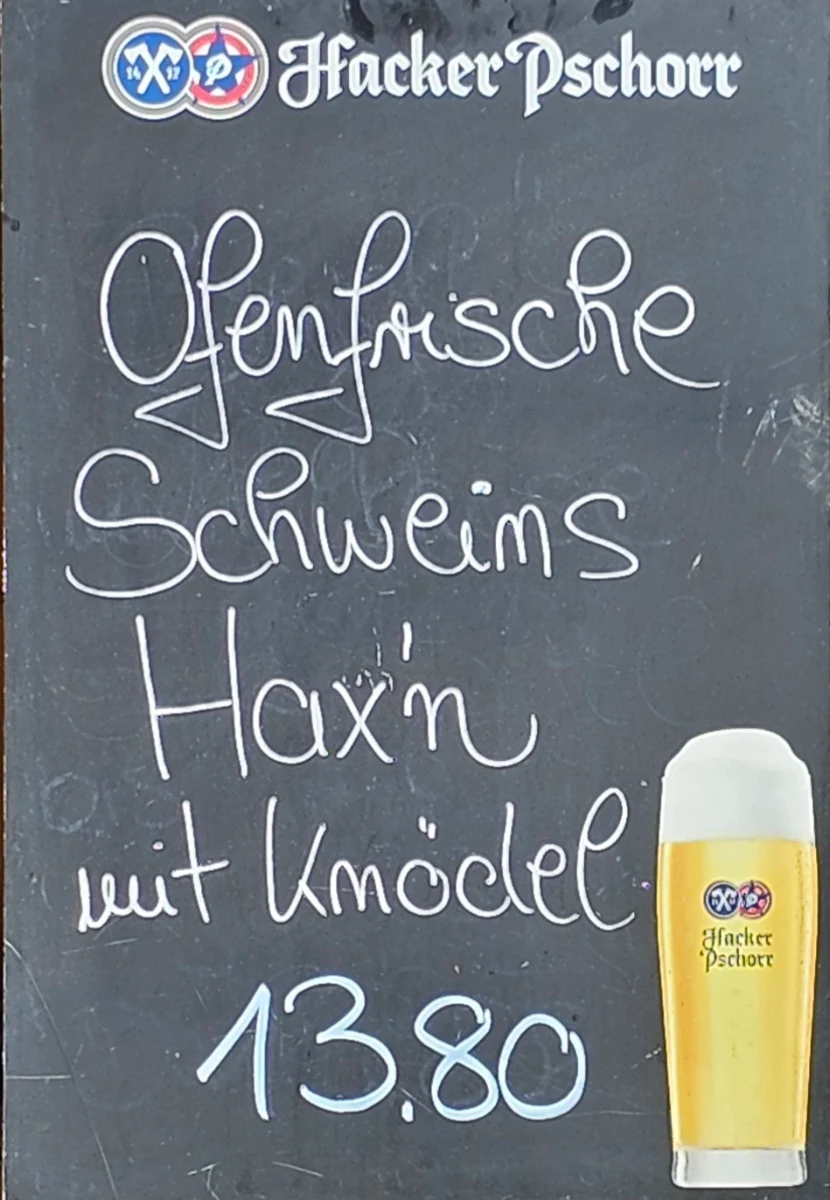 14 17 Hacker Pschorr
Ofenfrische
Schweins
Hax'n
mit Knödel
13.80
Hacker
Pschorr